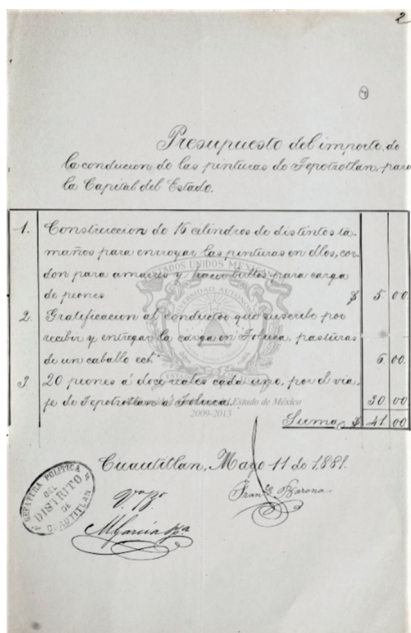 2
Presupuesto del importe de
la conducion de las pinturas de Tepotzotlan, para
la Capital del Estado.
1. Construccion de 15 cilindros de distintos ta-
maños para enroyar las pinturas en ellos, cor-
don para amarres y hacer bultos para carga
de piones $ 5 00
2. Gratificacion al conductor que suscribe por
recibir y entregar la carga en Toluca, pasturas
de un caballo ect. 6 00
3 20 piones á doce reales cada uno, por el via-
je de Tepotzotlan a Toluca. 30 00
Suma $ 41 00
ESTADOS UNIDOS MEXICANOS
Estado de México
2009-2013
Cuautitlan, Mayo 11 de 1881.
JEFATURA POLITICA
DEL
DISTRITO
DE
CUAUTITLAN
Vo. Bo.
Franco. Barona